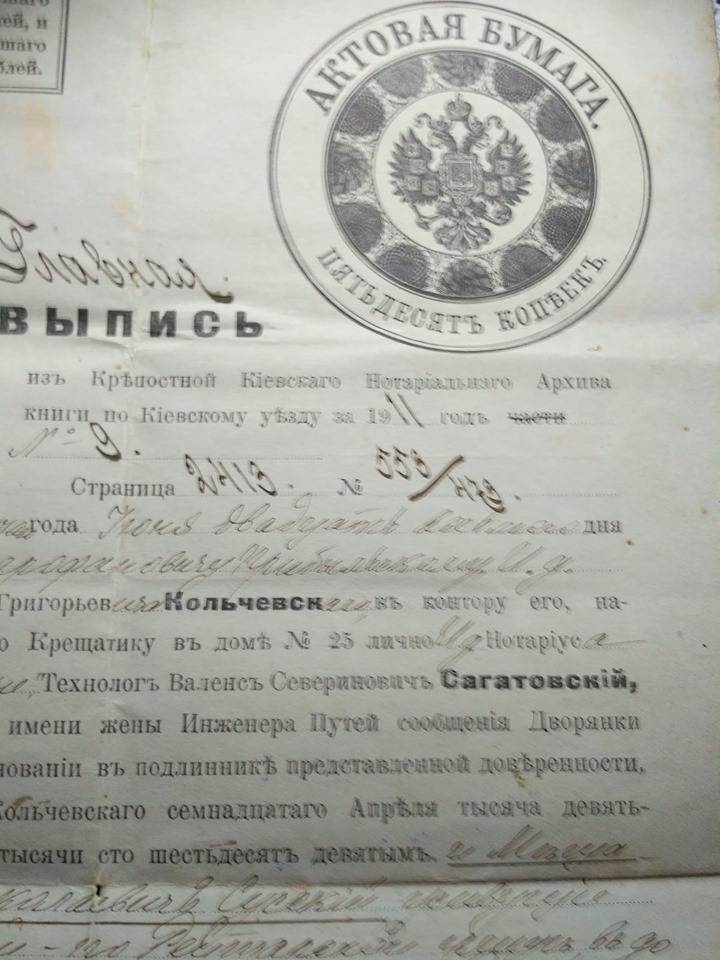 ей, и
шаго
блей.
АКТОВАЯ БУМАГА.
ПЯТЬДЕСЯТЪ КОПѢЕКЪ.
Главная.
ВЫПИСЬ
изъ Крѣпостной Кіевскаго Нотаріальнаго Архива
книги по Кіевскому уѣзду за 1911 годъ части
№ 9.
Страница 2413. № 553/473.
года Іюня двадцать дня
И. д.
Григорьевича Кольчевск въ контору его, на-
о Крещатику въ домѣ № 25 лично И д Нотаріуса
Технологъ Валенсъ Севериновичъ Сагатовскій,
имени жены Инженера Путей сообщенія Дворянки
нованіи въ подлинникѣ представленной довѣренности,
Кольчевскаго семнадцатаго Апрѣля тысяча девять-
тысячи сто шестьдесятъ девятымъ. и
по Рейтарской въ до